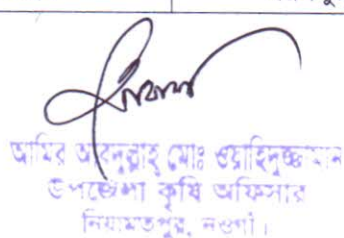 আমির আবদুল্লাহ্ মোঃ ওয়াহিদুজ্জামান
উপজেলা কৃষি অফিসার
নিয়ামতপুর, নওগাঁ।